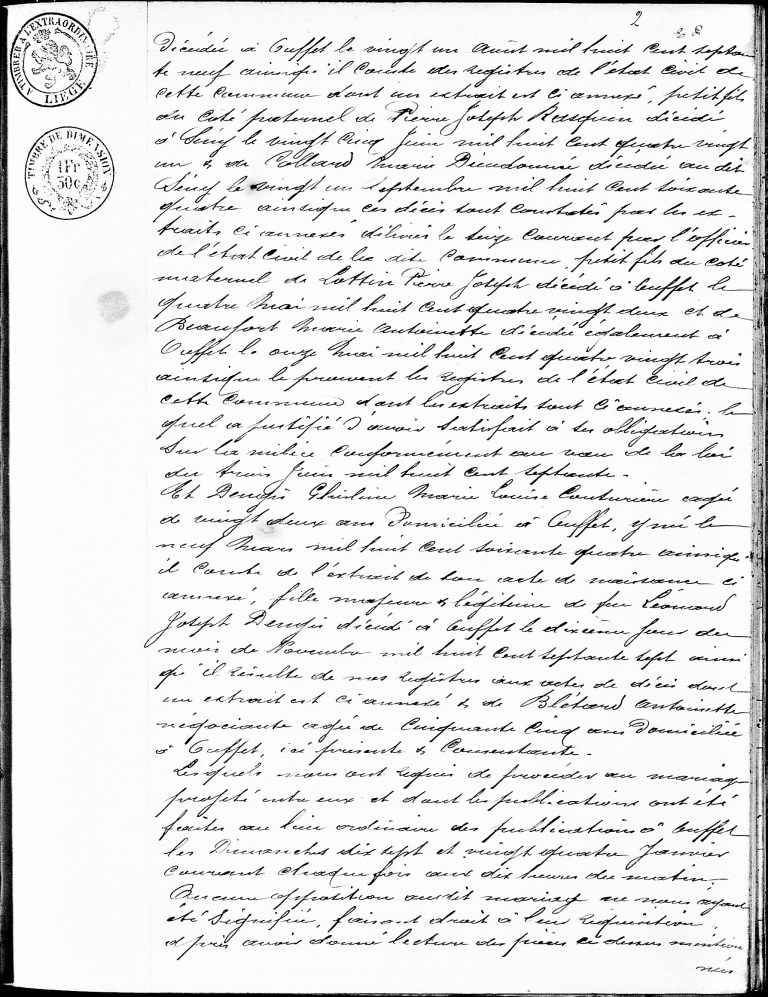 2
A TIMBRER A L'EXTRAORDINAIRE
LIEGE
TIMBRE DE DIMENSION
1 Fr
50 c
Décédée à Ouffet le vingt un Août mil huit cent septan
te neuf ainsiqu'il conste des registres de l'état civil de
cette commune dont un extrait est ci annexé, petit fils
du coté paternel de Pierre Joseph Rasquin décédé
à Seny le vingt cinq Juin mil huit cent quatre vingt
un & de Collard Marie Dieudonnée décédée au dit
Seny le vingt un septembre mil huit cent soixante
quatre ainsique ces décès sont constatés par les ex-
traits ci annexés délivrés le seize courant par l'officier
de l'état civil de la dite commune, petit fils du coté
maternel de Lottin Pierre Joseph décédé à Ouffet le
quatre Mai mil huit cent quatre vingt deux et de
Beaufort Marie Antoinette décédée également à
Ouffet le onze Mai mil huit cent quatre vingt trois
ainsique le prouvent les registres de l'état civil de
cette commune dont les extraits sont ci annexés, le
quel a justifié d'avoir satisfait à ses obligations
sur la milice conformément au vœu de la loi
du trois Juin mil huit cent septante.
Et Dengis Ghisline Marie Louise Couturière agée
de vingt deux ans Domiciliée à Ouffet, y née le
neuf Mars mil huit cent soixante quatre ainsiqu'
il conste de l'extrait de son acte de naissance ci
annexé, fille majeure & légitime de feu Léonard
Joseph Dengis décédé à Ouffet le dixième jour du
mois de Novembre mil huit cent septante sept ainsi
qu'il résulte de nos registres aux actes de décès dont
un extrait est ci annexé & de Blétard Antoinette
négociante agée de Cinquante Cinq ans Domiciliée
à Ouffet, ici présente & Consentante.
Lesquels nous ont requis de procéder au mariage
projeté entre eux et dont les publications ont été
faites au lieu ordinaire des publications à Ouffet
les Dimanches dix sept et vingt quatre Janvier
courant chaque fois aux dix heures du matin;
Aucune opposition audit mariage ne nous ayant
été signifiée, faisant droit à leur requisition,
après avoir donné lecture des pièces ci dessus mention
nées